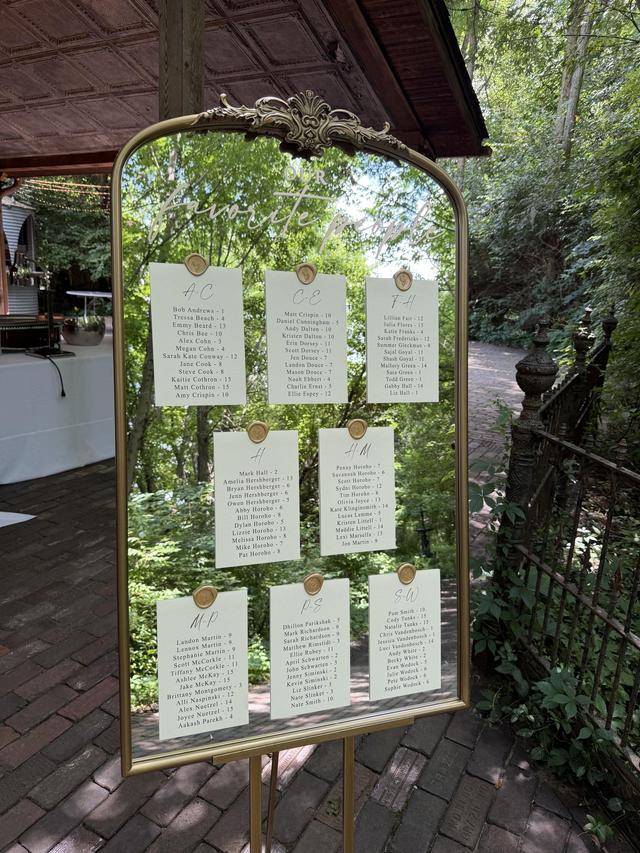 OUR
favorite people
A-C
Bob Andrews - 1
Tressa Beach - 4
Emmy Beard - 13
Chris Bee - 10
Alex Cohn - 3
Megan Cohn - 4
Sarah Kate Conway - 12
Jane Cook - 8
Steve Cook - 8
Kaitie Cothron - 15
Matt Cothron - 15
Amy Crispin - 10
C-E
Matt Crispin - 10
Daniel Cunningham - 5
Andy Dalton - 10
Kristen Dalton - 10
Erin Dorsey - 11
Scott Dorsey - 11
Jen Douce - 7
Landon Douce - 7
Mason Douce - 7
Noah Ebbert - 4
Charlie Ernst - 5
Ellie Espey - 12
F-H
Lillian Fair - 12
Julia Flores - 13
Katie Franks - 4
Sarah Fredericks - 12
Summer Gleckman - 4
Sajal Goyal - 11
Shash Goyal - 11
Mallory Green - 14
Sara Green - 1
Todd Green - 1
Gabby Hall - 14
Liz Hall - 1
H
Mark Hall - 2
Amelia Hershberger - 13
Bryan Hershberger - 6
Jenn Hershberger - 6
Owen Hershberger - 5
Abby Horoho - 6
Bill Horoho - 8
Dylan Horoho - 5
Lizzie Horoho - 13
Melissa Horoho - 8
Mike Horoho - 7
Pat Horoho - 8
H-M
Penny Horoho - 7
Savannah Horoho - 6
Scott Horoho - 7
Sydni Horoho - 12
Tim Horoho - 6
Olivia Joyce - 13
Kate Klinginsmith - 14
Lucas Lemme - 5
Kristen Littell - 1
Maddie Littell - 14
Lexi Marsella - 13
Jon Martin - 9
M-P
Landon Martin - 9
Lennox Martin - 9
Stephanie Martin - 9
Scott McCorkle - 11
Tiffany McCorkle - 11
Ashlee McKay - 15
Jake McKay - 15
Brittany Montgomery - 3
Alli Naspinski - 12
Alex Nuetzel - 14
Joyce Nuetzel - 15
Aakash Parekh - 4
P-S
Dhillon Parikshak - 5
Mark Richardson - 9
Sarah Richardson - 9
Matthew Rimstidt - 3
Ellie Rubey - 11
April Schwarten - 2
John Schwarten - 2
Jenny Siminski - 2
Kevin Siminski - 2
Liz Slinker - 3
Nate Slinker - 3
Nate Smith - 10
S-W
Pam Smith - 10
Cody Tunks - 15
Natalie Tunks - 15
Chris Vandenbosch - 1
Jessica Vandenbosch - 1
Luci Vandenbosch - 14
Andy White - 2
Becky White - 2
Evan Wodock - 5
Julie Wodock - 6
Pete Wodock - 6
Sophie Wodock - 13